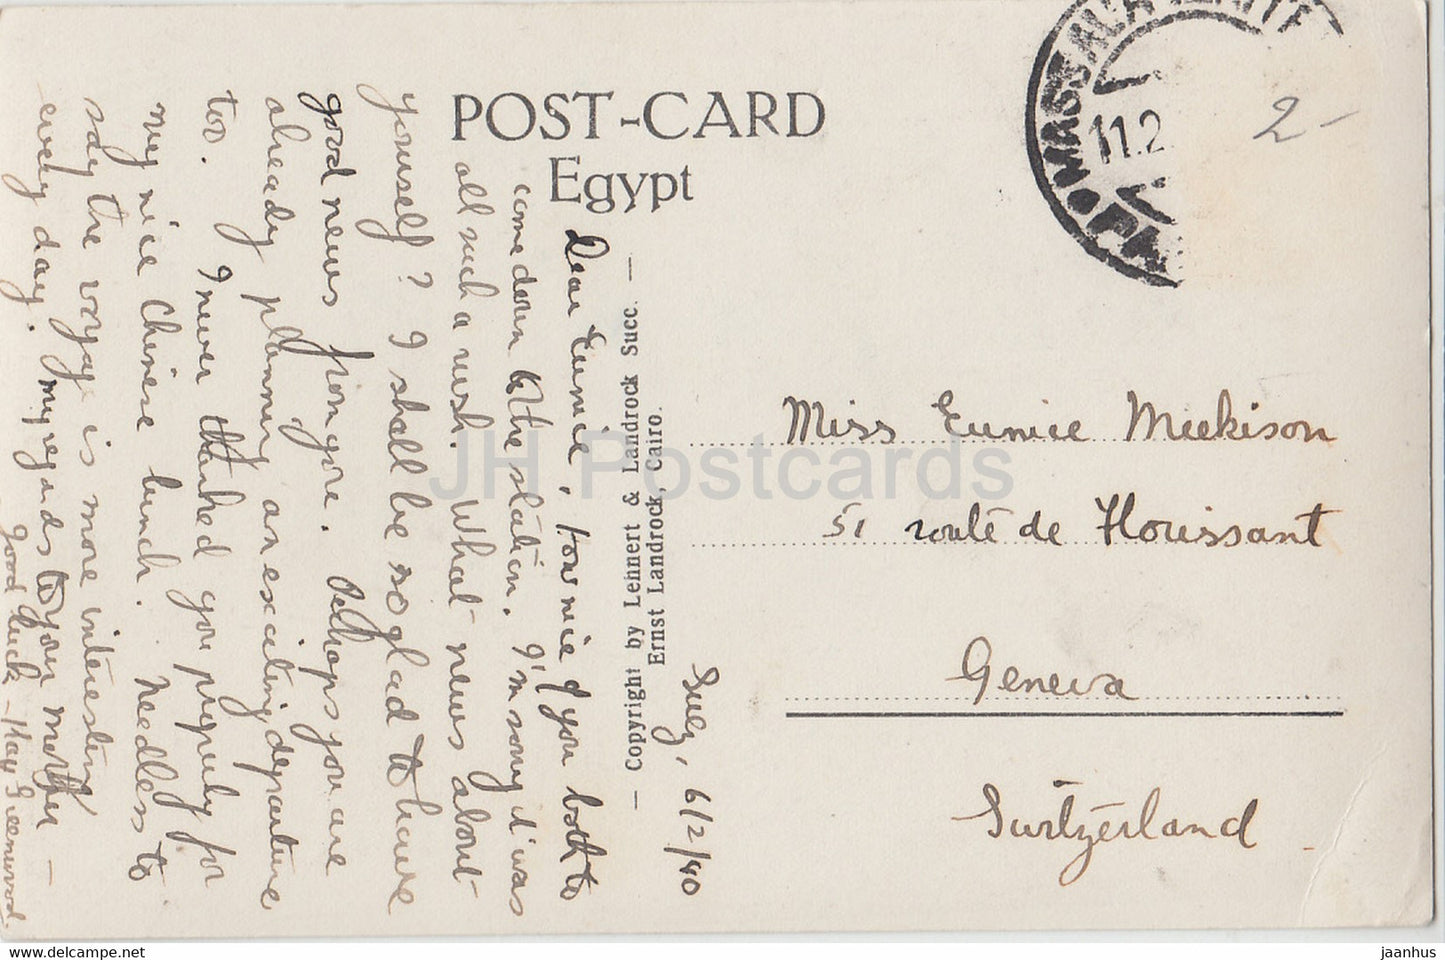 POST-CARD
Egypt
MASSAUA
11.2
PA
2-
Suez, 6/2/40
Dear Eunice, How nice of you both to
come down to the station. I'm sorry I was
all such a rush. What news about
yourself? I shall be so glad to have
good news from you. Perhaps you are
already planning an exciting departure
too. I never thanked you properly for
my nice Chinese lunch. Needless to
say the voyage is more interesting
every day. My regards to your mother –
Good luck – Kay Greenwood.
– Copyright by Lehnert & Landrock Succ. –
Ernst Landrock, Cairo.
Miss Eunice Meekison
51 route de Florissant
Geneva
Switzerland
JH Postcards
www.delcampe.net
jaanhus